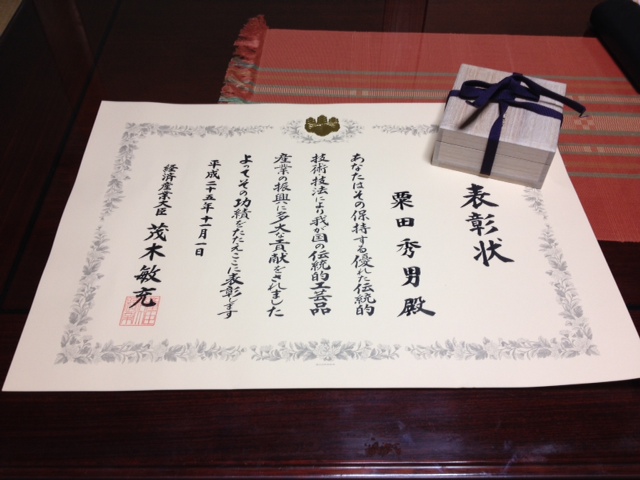 表彰状
粟田秀男殿
あなたはその保持する優れた伝統的
技術技法により我が国の伝統的工芸品
産業の振興に多大な貢献をされました
よってその功績をたたえここに表彰します
平成二十五年十一月一日
経済産業大臣 茂木敏充